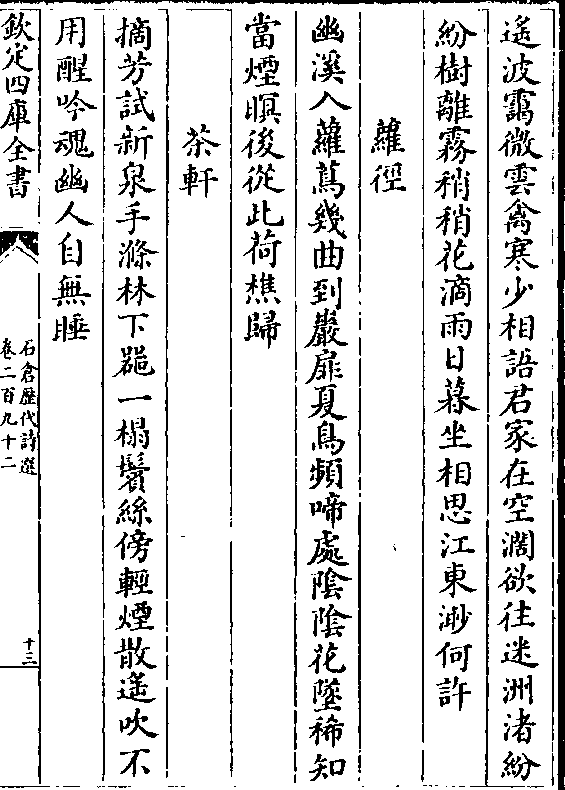 遙波靄微雲禽寒少相語君家在空濶欲往迷洲渚紛
紛樹離霧稍稍花滴雨日暮坐相思江東渺何許
蘿徑
幽溪入蘿蔦幾曲到巖扉夏鳥頻啼處陰陰花墜稀知
當煙暝後從此荷樵歸
茶軒
摘芳試新泉手滌林下器一榻鬢絲傍輕煙散遙吹不
用醒吟魂幽人自無睡
欽定四庫全書
石倉歷代詩選
卷二百九十二
十三